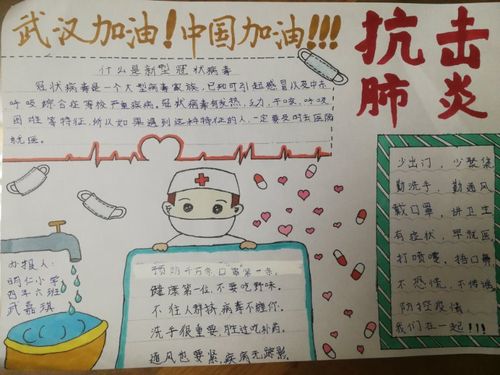 武汉加油!中国加油!!!
抗击
肺炎
什么是新型冠状病毒
冠状病毒是一个大型病毒家族,已知可引起感冒以及中东
呼吸综合征等较严重疾病。冠状病毒有发热,乏力,干咳,呼吸
困难等特征,所以如果遇到这种特征的人,一定要及时去医院
就医。
少出门,少聚集
勤洗手,勤通风
戴口罩,讲卫生
有症状,早就医
打喷嚏,捂口鼻
不恐慌,不传谣
防控疫情
我们在一起!!!
办报人:
明仁小学
四年六班
武嘉琪
预防千万条,口罩第一条。
健康第一位,不要吃野味。
不往人群挤,病毒不缠你。
洗手很重要,胜过吃补药。
通风也要紧,疾病无踪影。